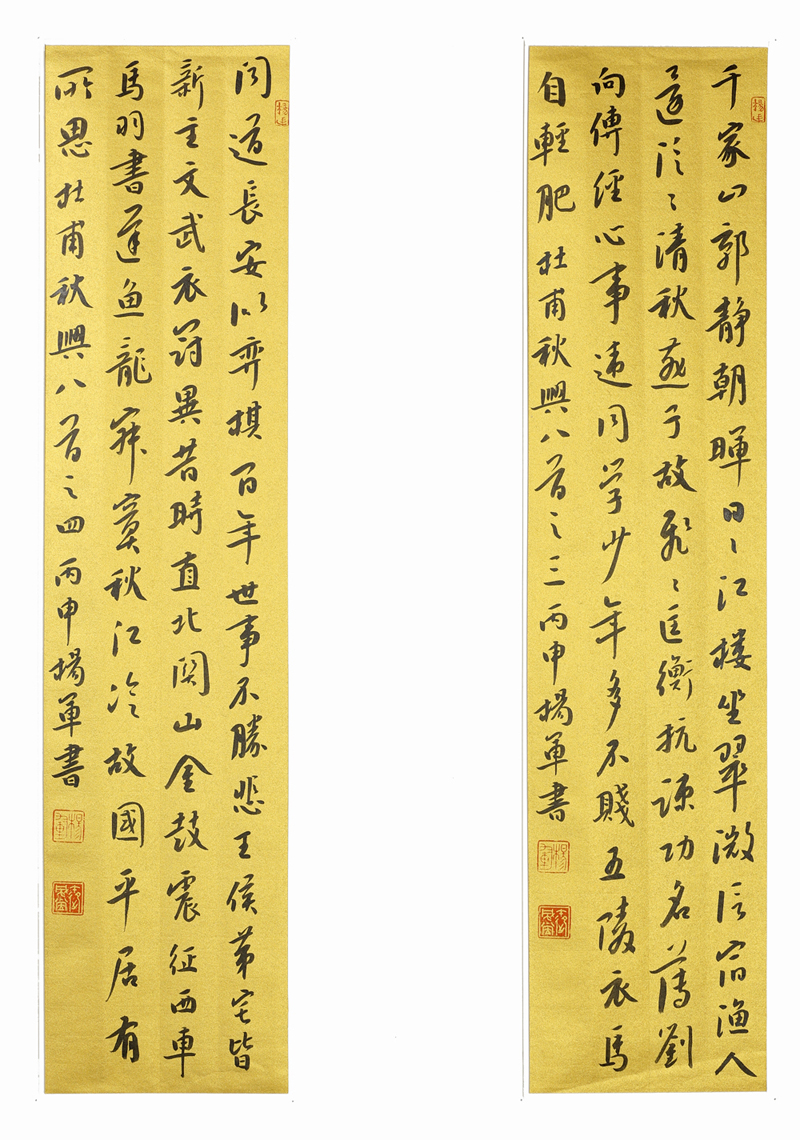 千家山郭靜朝暉日〻江楼坐翠微信宿漁人
還泛〻清秋燕子故飛〻匡衡抗疏功名薄劉
向傳經心事違同学少年多不賤五陵衣馬
自輕肥 杜甫秋興八首之三 丙申楊軍書
楊軍
聞道長安似弈棋百年世事不勝悲王侯第宅皆
新主文武衣冠異昔時直北関山金鼓震征西車
馬羽書遲魚龍寂寞秋江冷故國平居有
所思 杜甫秋興八首之四 丙申楊軍書
楊軍